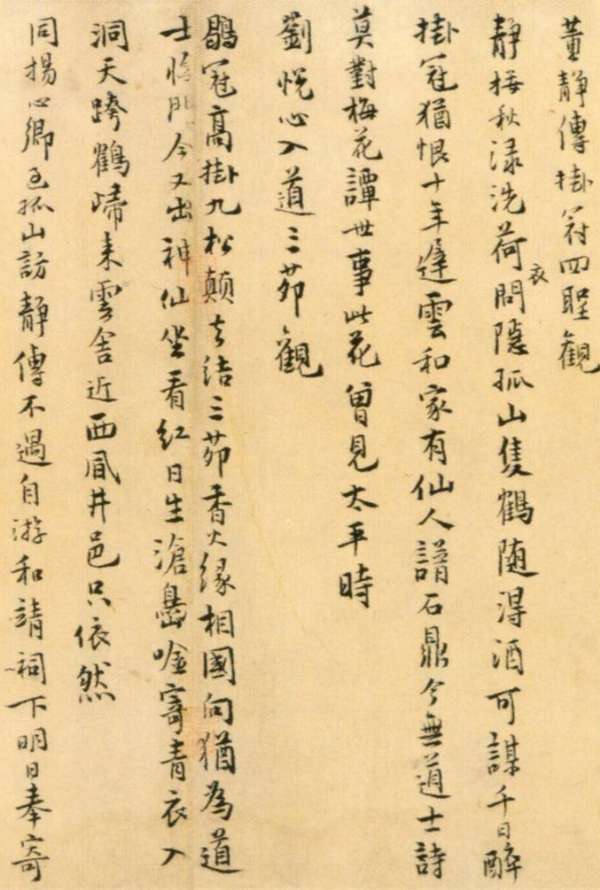 董靜傳掛冠四聖觀
靜挼秋淥洗荷衣問隱孤山隻鶴隨得酒可謀千日醉
掛冠猶恨十年遲雲和家有仙人譜石鼎今無道士詩
莫對梅花譚世事此花曾見太平時
劉悅心入道三茆觀
鶡冠高掛九松顛去結三茆香火緣相國向猶為道
士將門今又出神仙坐看紅日生滄島唫寄青衣入
洞天跨鶴歸來雲舍近西風井邑只依然
同楊心卿至孤山訪靜傳不遇自游和靖祠下明日奉寄